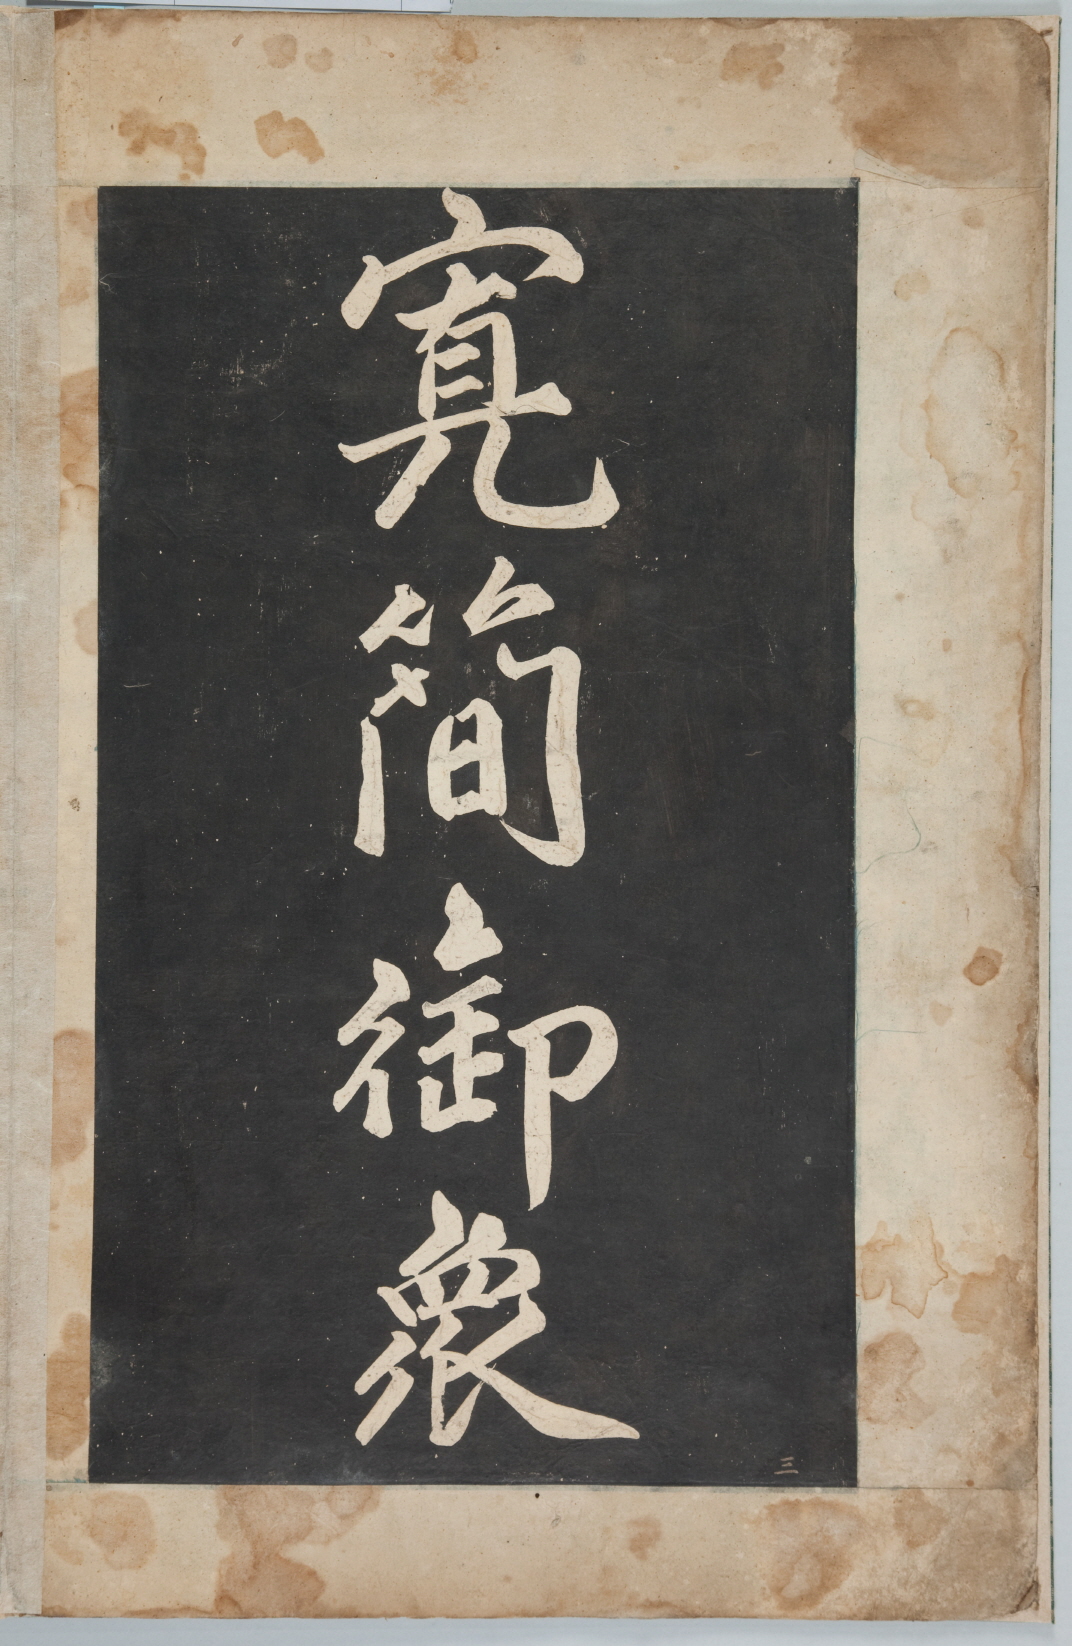 寬簡御衆
三